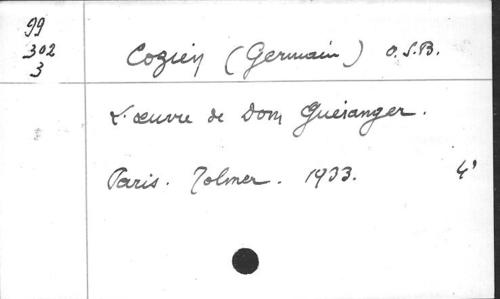 99
302
3
Cozien (Germain) O.S.B.
L'œuvre de Dom Guéranger.
Paris. Tolmer. 1933. 4°